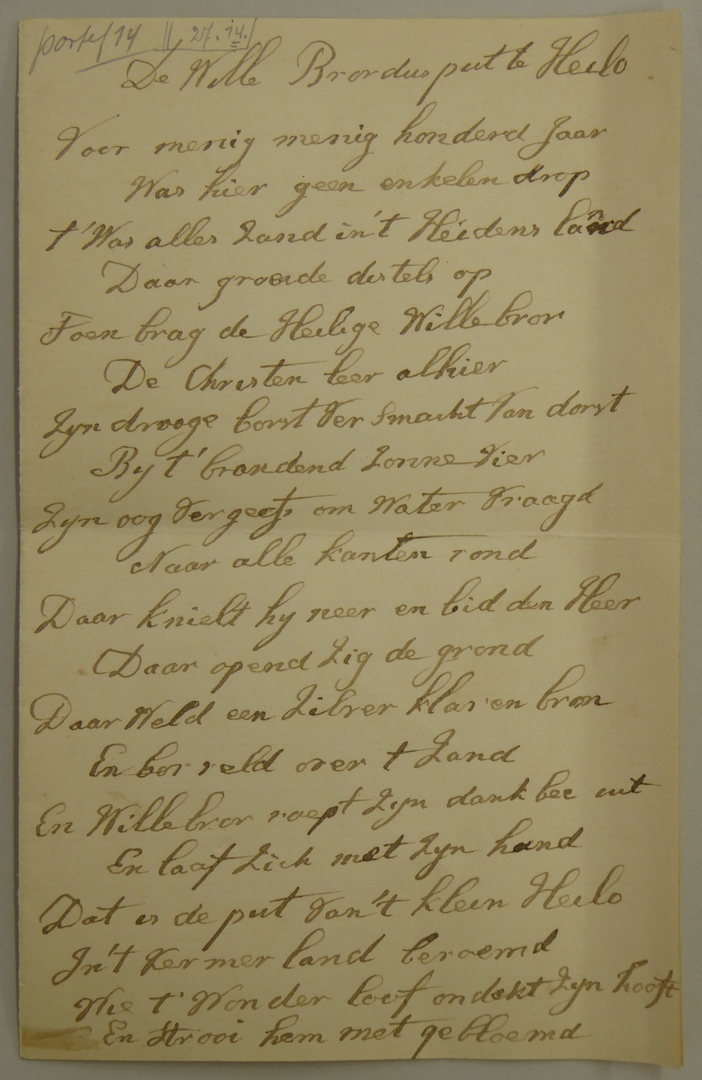 portef 14 || 27.14.
De Wille Brordus put te Heilo
Voor menig menig honderd Jaar
Was hier geen enkelen drop
t'Was alles Zand in't Heidens land
Daar groeide distels op
Toen brag de Heilige Willebror
De Christen leer alhier
Zyn drooge borst Versmacht Van dorst
By t'brandend Zonne Vier
Zyn oog Vergeefs om Water Vraagd
Naar alle kanten rond
Daar knielt hy neer en bid den Heer
Daar opend Zig de grond
Daar Weld een Zilver klaren bron
En borreld over t Zand
En Willebror roept Zyn dank bee uit
En laaf Zich met Zyn hand
Dat is de put Van't klein Heilo
In't Kermer land beroemd
Wie t'Wonder loof ondekt Zyn hooft
En Strooi hem met gebloemd